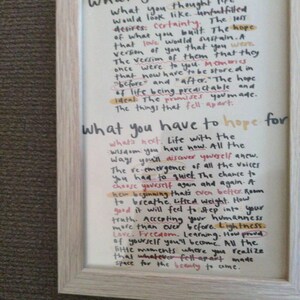 what you thought life
would look like. unfulfilled
desires. Certainty. The loss
of what you built. The hope
that love would sustain. A
version of you that you were.
The version of them that they
once were to you. Memories
that now have to be stored in
"before" and "after". The hope
of life being predictable and
ideal. The promises you made.
The things that fell apart.
what you have to hope for
what's next. Life with the
wisdom you have now. All the
ways you'll discover yourself anew.
The re-emergence of all the voices
you had to quiet. The chance to
choose yourself again and again. A
new beginning that's even better. Room
to breathe. Lifted weight. How
good it will feel to step into your
truth. Accepting your humanness
more than ever before. Lightness.
Love. Freedom. Learning. How proud
of yourself you'll become. All the
little moments where you realize
that whatever fell apart made
space for the beauty to come.